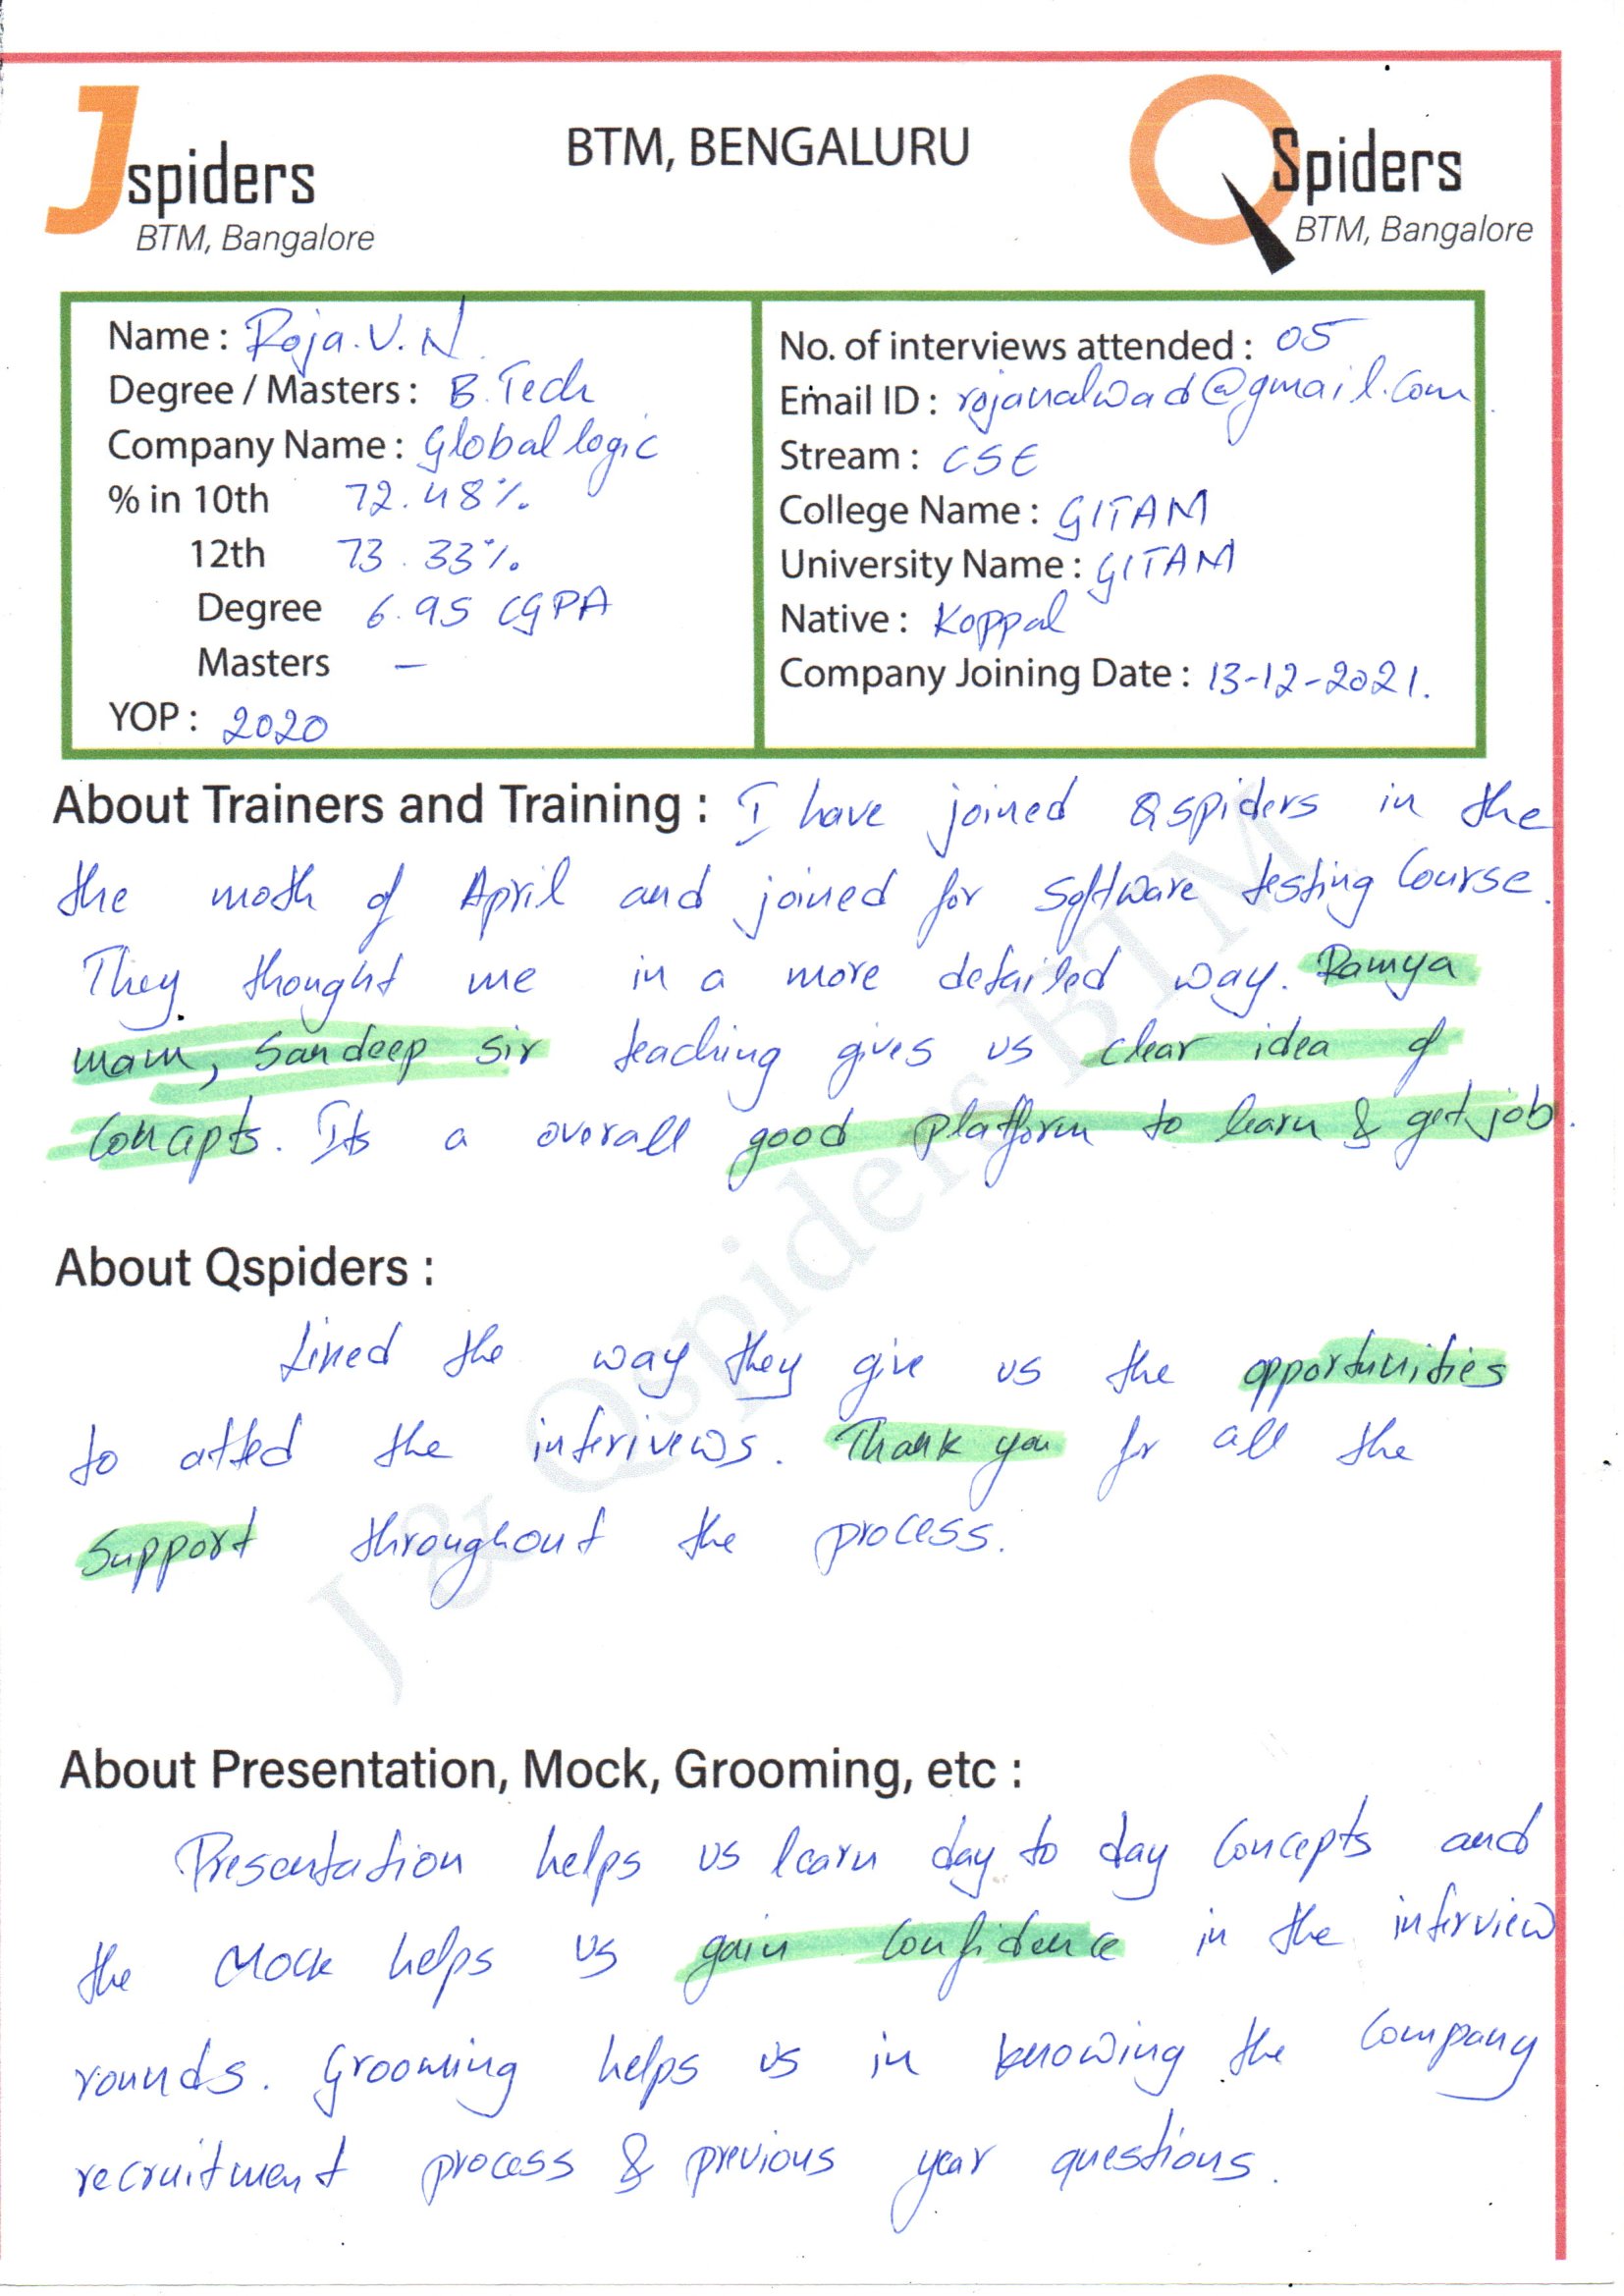 Jspiders
BTM, Bangalore
BTM, BENGALURU
QSpiders
BTM, Bangalore
Name : Roja.V.N.
Degree / Masters : B.Tech
Company Name : Global logic
% in 10th 72.48%.
12th 73.33%.
Degree 6.95 CGPA
Masters –
YOP : 2020
No. of interviews attended : 05
Email ID : rojanalwad@gmail.com
Stream : CSE
College Name : GITAM
University Name : GITAM
Native : Koppal
Company Joining Date : 13-12-2021.
About Trainers and Training : I have joined Qspiders in the
the moth of April and joined for software testing Course.
They thought me in a more detailed way. Ramya
mam, Sandeep sir teaching gives us clear idea of
Concepts. Its a overall good platform to learn & get job.
About Qspiders :
Liked the way they give us the opportunities
to atted the interivews. Thank you for all the
Support throughout the process.
About Presentation, Mock, Grooming, etc :
Presentation helps us learn day to day Concepts and
the Mock helps us gain Confidence in the interview
rounds. Grooming helps us in knowing the Company
recruitment process & previous year questions.
J & Qspiders BTM